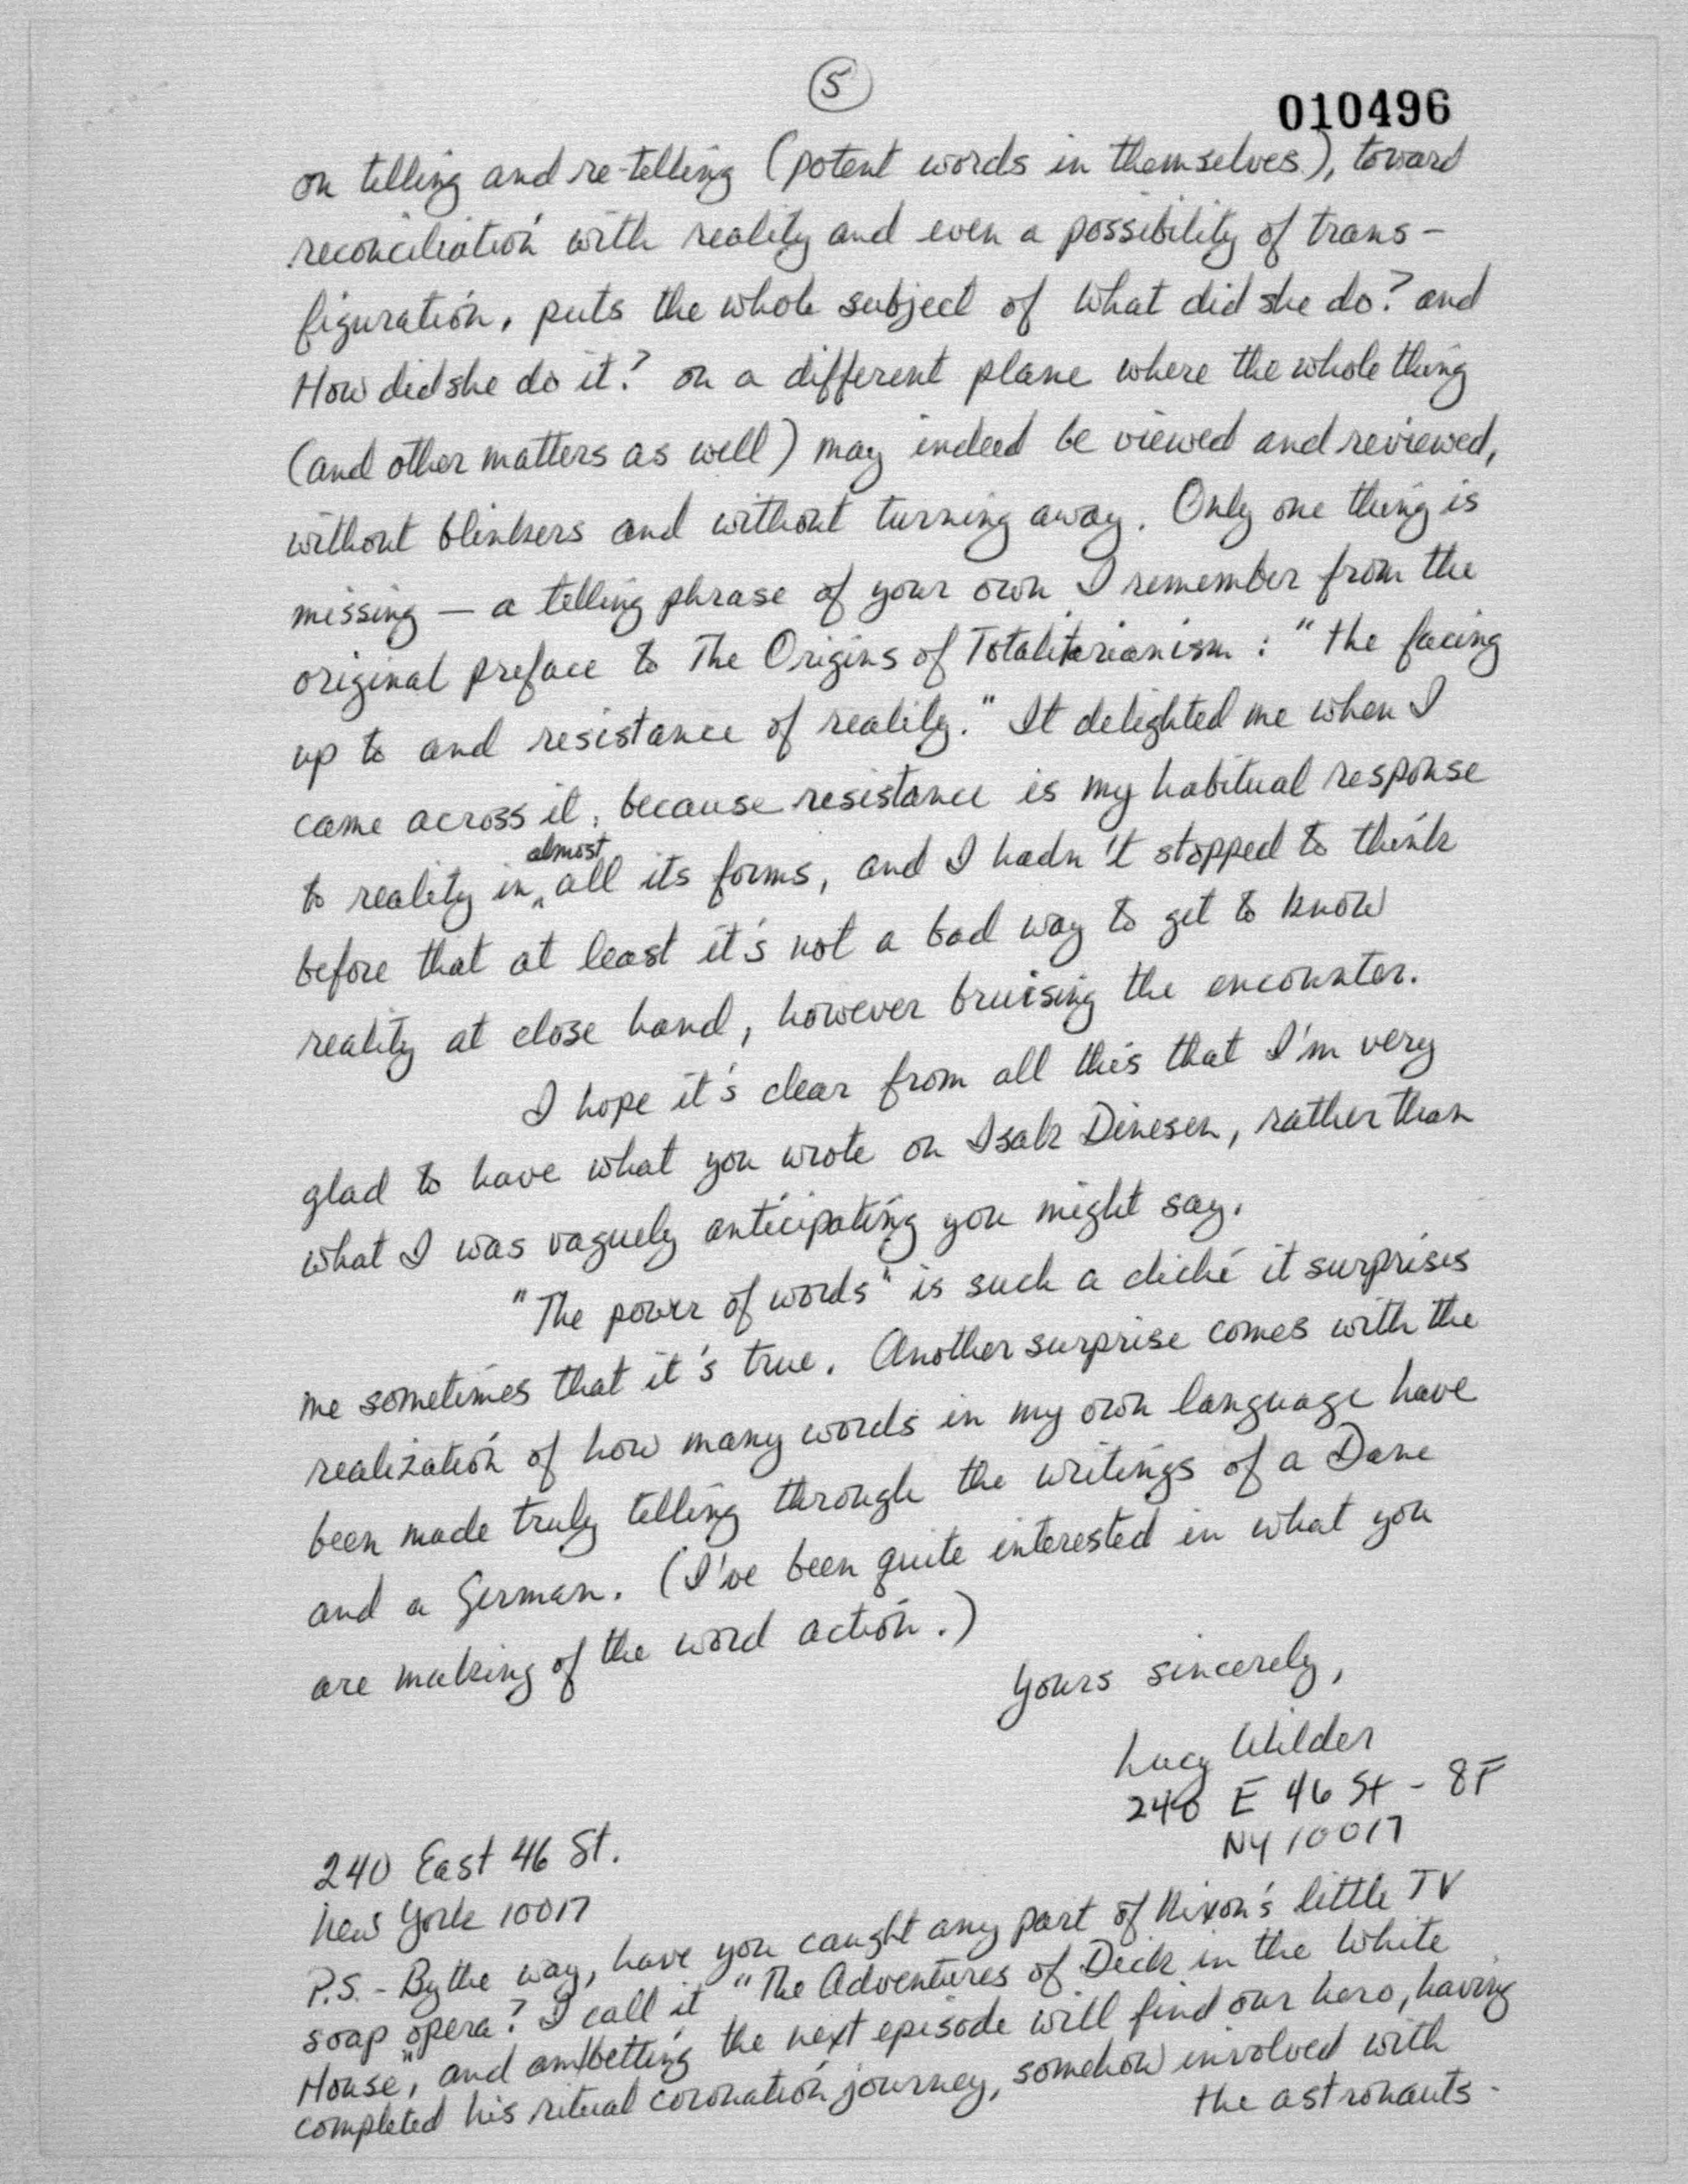 5
010496
on telling and re-telling (potent words in themselves), toward
reconciliation with reality and even a possibility of trans-
figuration, puts the whole subject of What did she do? and
How did she do it? on a different plane where the whole thing
(and other matters as well) may indeed be viewed and reviewed,
without blinkers and without turning away. Only one thing is
missing — a telling phrase of your own I remember from the
original preface to The Origins of Totalitarianism : "the facing
up to and resistance of reality." It delighted me when I
came across it, because resistance is my habitual response
almost
to reality in ‸ all its forms, and I hadn't stopped to think
before that at least it's not a bad way to get to know
reality at close hand, however bruising the encounter.
I hope it's clear from all this that I'm very
glad to have what you wrote on Isak Dinesen, rather than
what I was vaguely anticipating you might say.
"The power of words" is such a cliché it surprises
me sometimes that it's true. Another surprise comes with the
realization of how many words in my own language have
been made truly telling through the writings of a Dane
and a German. (I've been quite interested in what you
are making of the word action.)
Yours sincerely,
Lucy Wilder
240 E 46 St - 8F
NY 10017
240 East 46 St.
New York 10017
P.S. - By the way, have you caught any part of Nixon's little TV
soap opera? I call it "The Adventures of Dick in the White
House", and am betting the next episode will find our hero, having
completed his ritual coronation journey, somehow involved with
the astronauts.